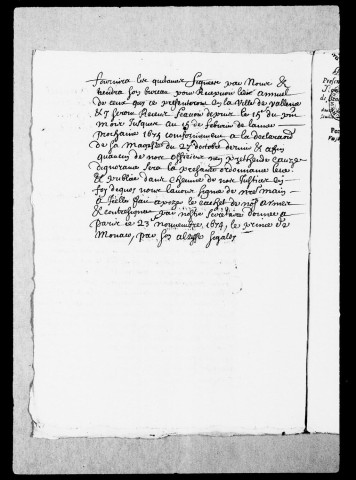 fournira les quitance signee par nous &
tiendra son bureau pour recepvoir led annuel
de ceux qui se presenteron en la Ville de Vallence
& y seron receus scavoir depuis le 15e du pnt
mois jusques au 15 de febvrier de lannee
prochaine 1675 conformement a la declaraon
de la Mageste du 27 octobre dernier & afin
quaucun de nos officiers nen prethende cauze
dignorance sera la presante ordonnance leue
& publiee dans chacune de nos justices en
foy dequoy nous lavons signe de nre main
a icelle fait apozer le cachet de nos armes
& contresigner par nostre secretaire donne a
Paris le 23e novembre 1674, le prince de
Monaco, par son altesse